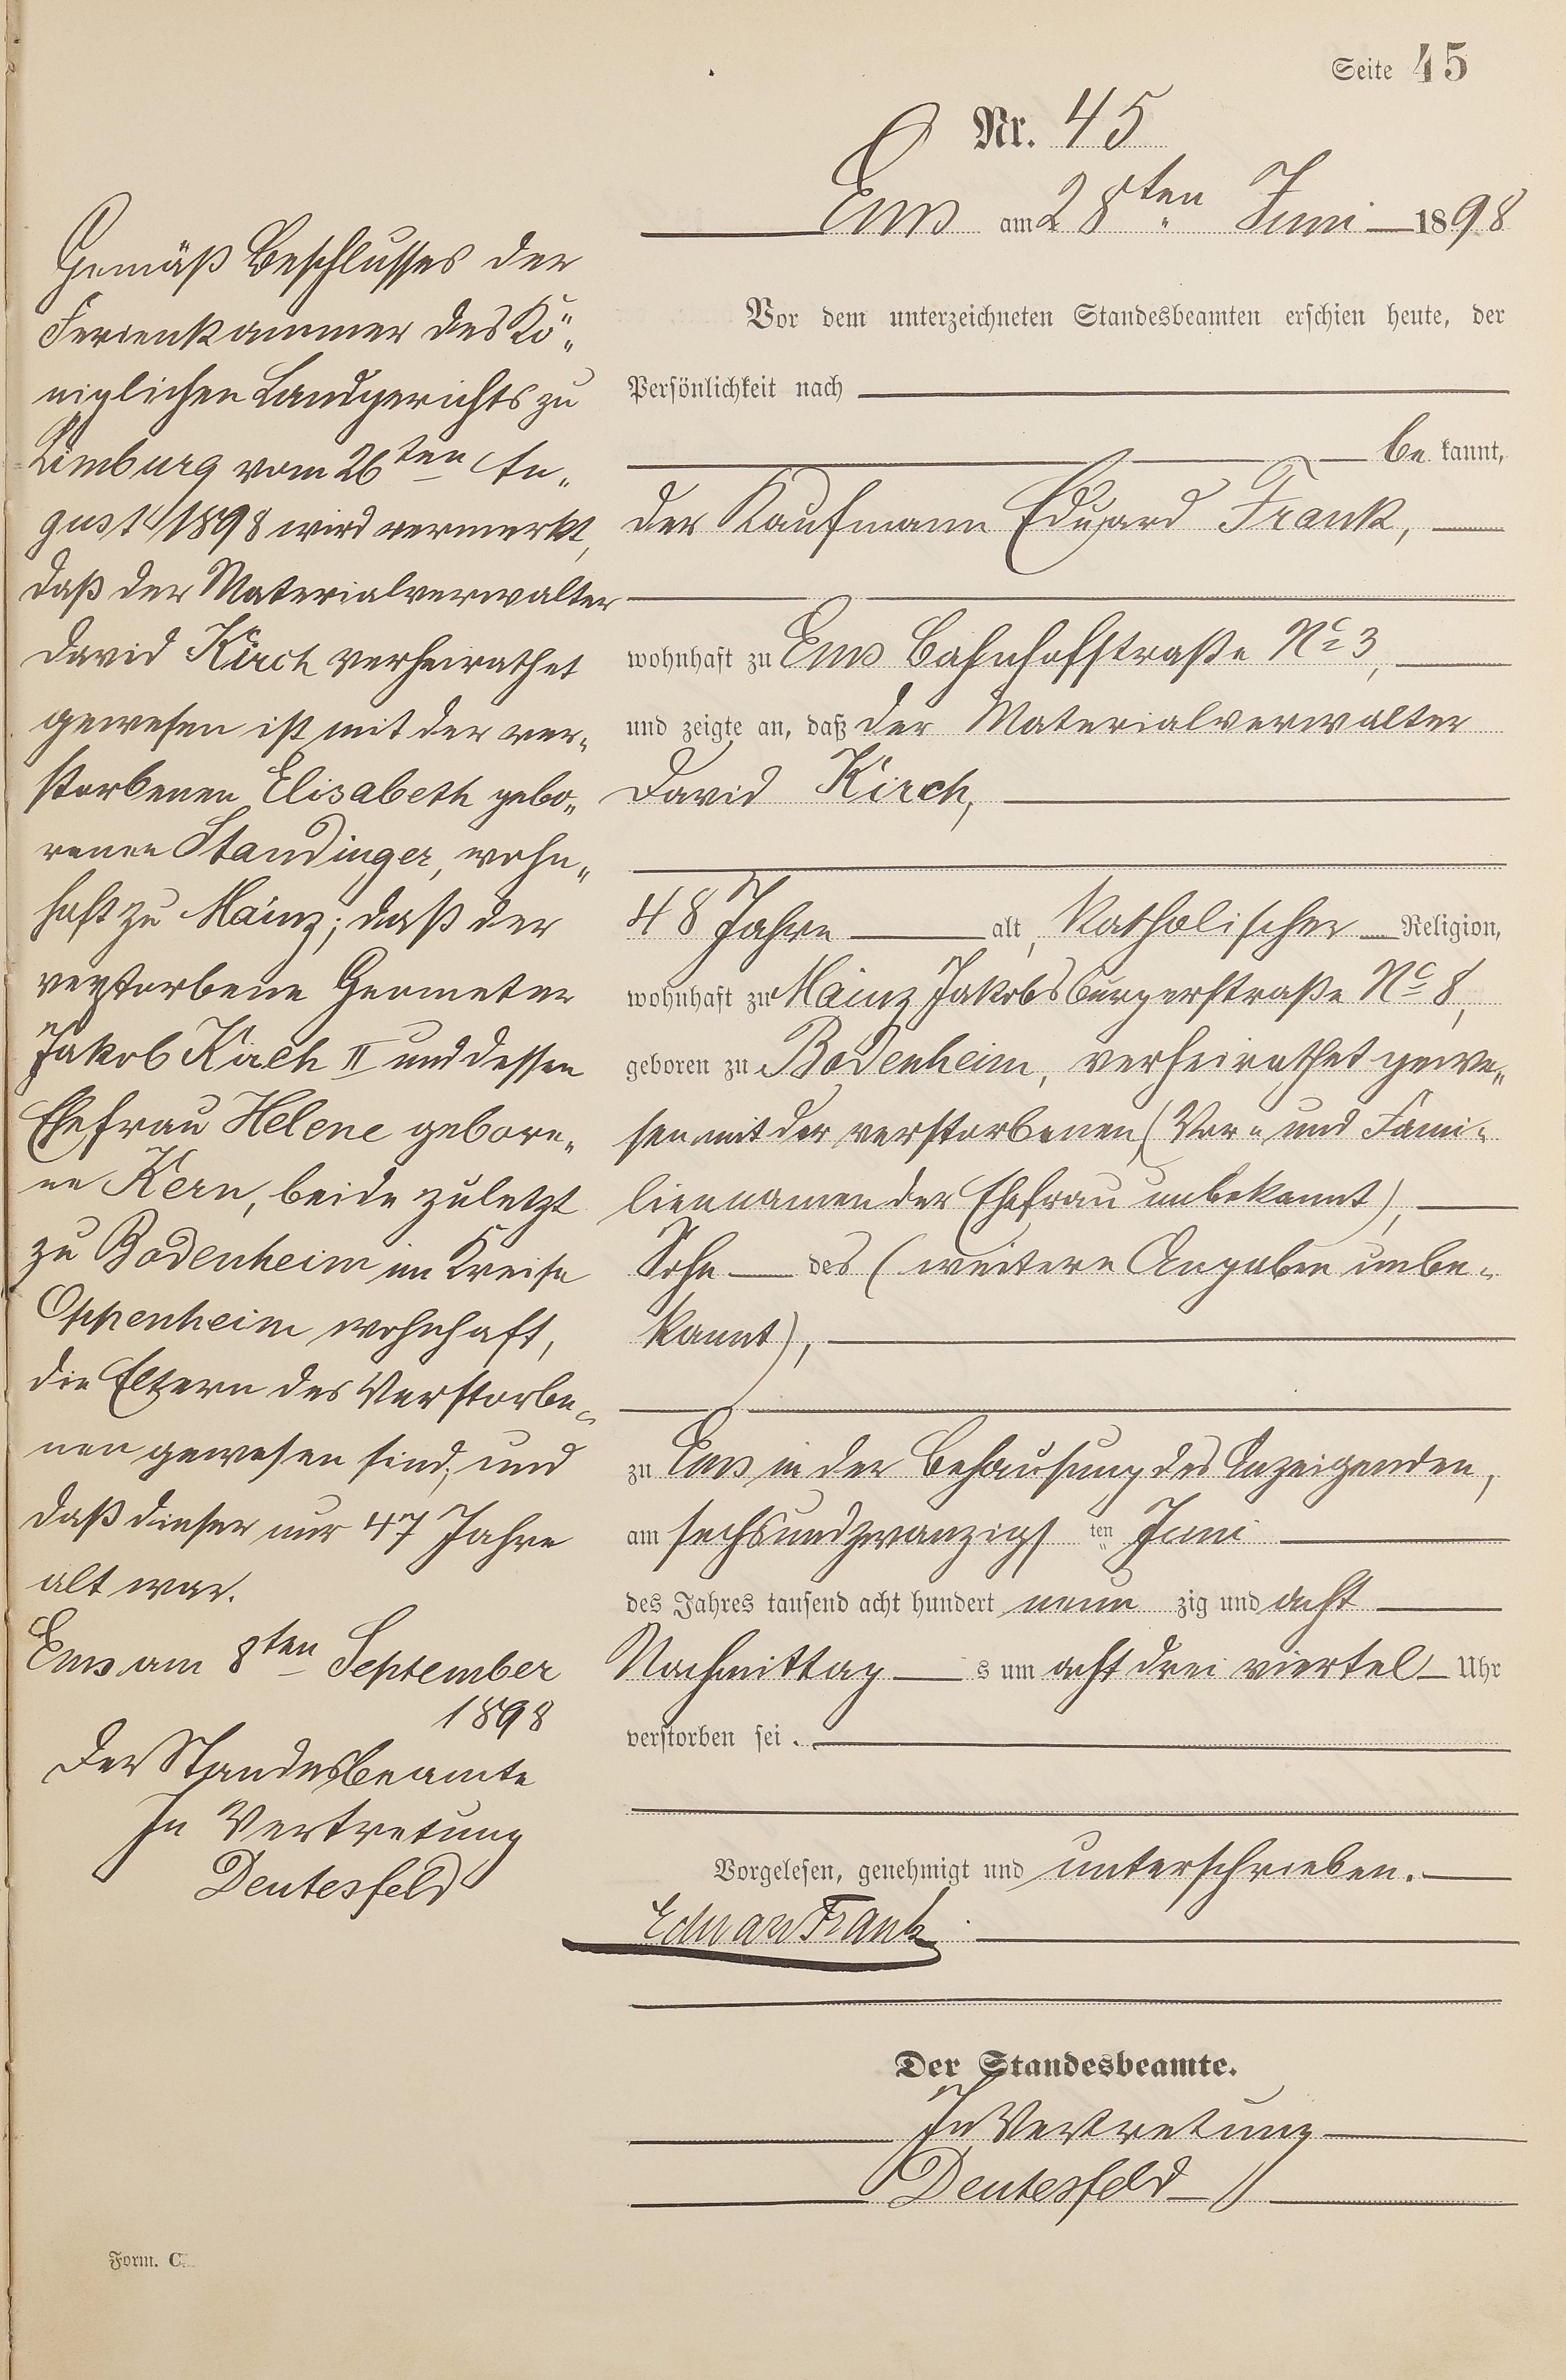 Seite 45
Nr. 45
Ems am 28ten Juni 1898
Vor dem unterzeichneten Standesbeamten erschien heute, der
Persönlichkeit nach
be kannt,
der Kaufmann Eduard Frank,
wohnhaft zu Ems Bahnhofstraße No 3,
und zeigte an, daß der Materialverwalter
David Kirch,
48 Jahre alt, katholischer Religion,
wohnhaft zu Mainz Jakobsburgerstraße No 8,
geboren zu Bodenheim, verheirathet gewe„
sen mit der verstorbenen (Vor- und Fami-
liennamen der Ehefrau unbekannt),
Sohn des (weitere Angaben unbe-
kannt),
zu Ems in der Behausung des Anzeigenden,
am sechsundzwanzigs ten Juni
des Jahres tausend acht hundert neun zig und acht
Nachmittag s um acht drei viertel Uhr
verstorben sei.
Vorgelesen, genehmigt und unterschrieben.
Eduard Frank
Der Standesbeamte.
In Vertretung
Deutesfeld
Gemäß Beschlusses der
Ferienkammer des Kö„
niglichen Landgerichts zu
Limburg vom 26ten Au„
gust 1898 wird vermerkt,
daß der Materialverwalter
David Kirch verheirathet
gewesen ist mit der ver„
storbenen Elisabeth gebo„
renen Staudinger, wohn„
haft zu Mainz; daß der
verstorbene Geometer
Jakob Kirch II und dessen
Ehefrau Helene gebore„
ne Kern, beide zuletzt
zu Bodenheim im Kreise
Oppenheim wohnhaft,
die Eltern des Verstorbe„
nen gewesen sind, und
daß dieser nur 47 Jahre
alt war.
Ems am 8ten September
1898
Der Standesbeamte
In Vertretung
Deutesfeld
Form. C.